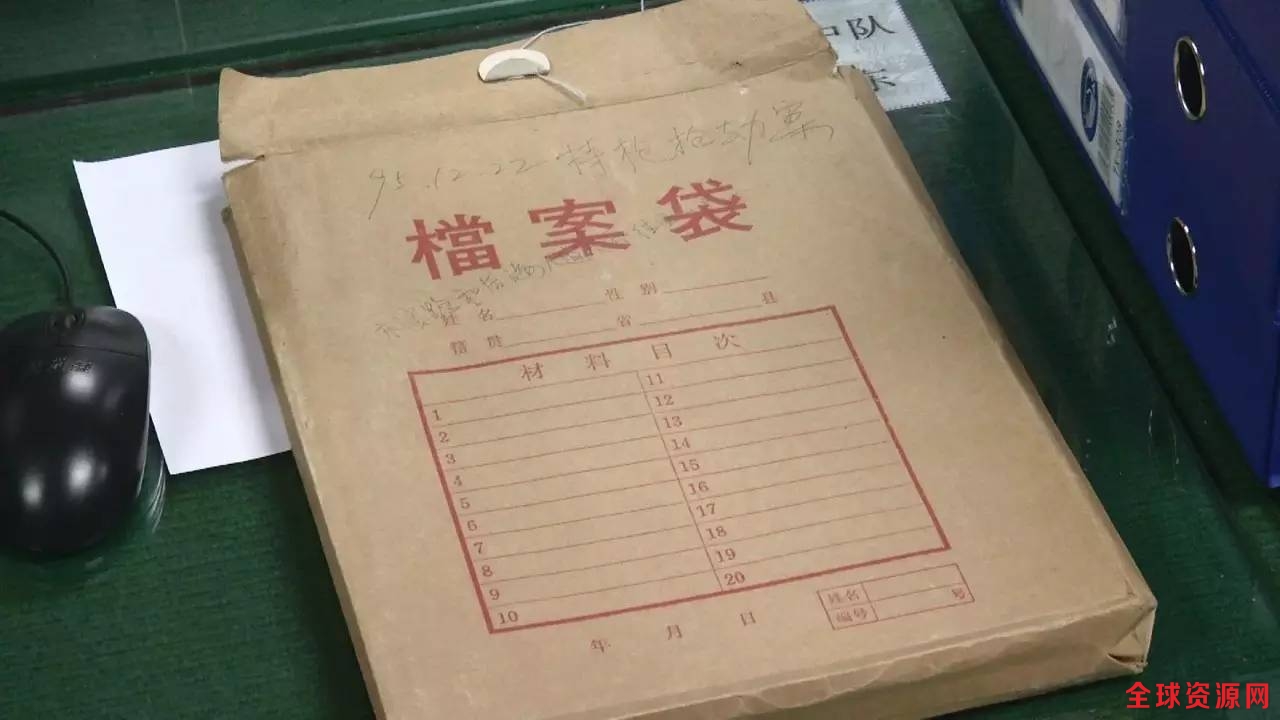 中队
宗
95.12.22 持枪抢劫案
檔案袋
姓名 性别
籍贯 省 县
材料目次
1 11
2 12
3 13
4 14
5 15
6 16
7 17
8 18
9 19
10 20
年 月 日
姓名
编号 号
全球资源网